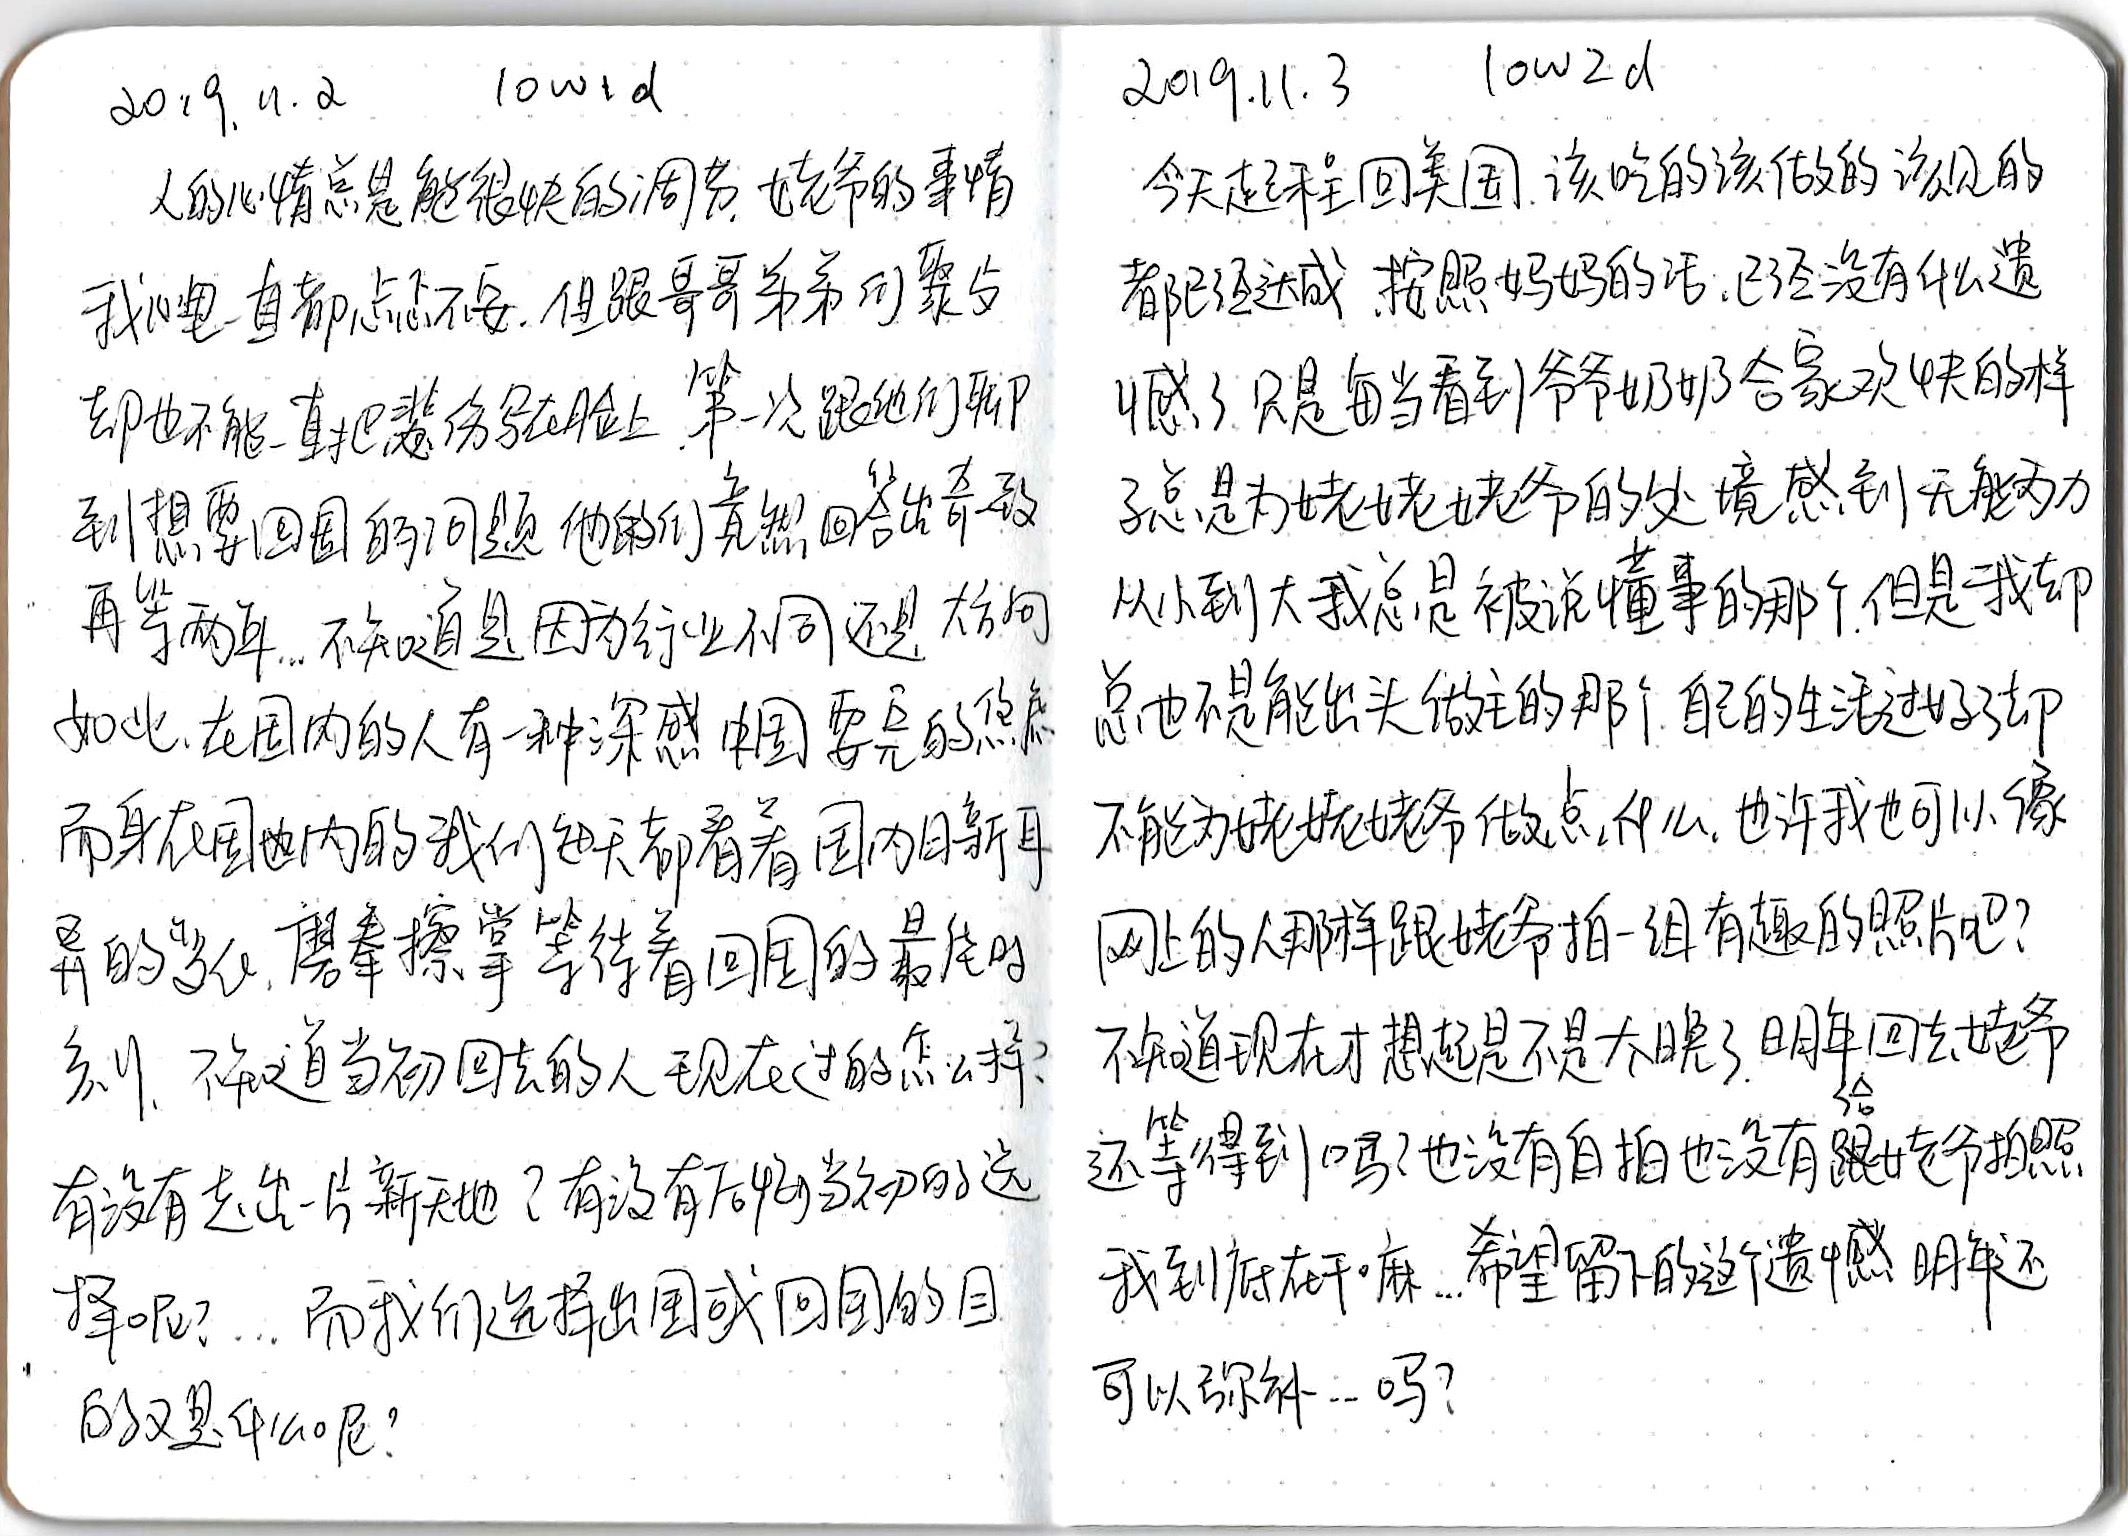 2019.11.2 10w1d
人的心情总是能很快的调节，姥爷的事情
我心里一直都忐忑不安，但跟哥哥弟弟们聚会
却也不能一直把悲伤写在脸上，第一次跟他们聊
到想要回国的问题 他们竟然回答出奇一致
再等两年…不知道是因为行业不同还是大方向
如此，在国内的人有一种深感中国要完的焦虑
而身在国内的我们每天都看着国内日新月
异的变化，磨拳擦掌等待着回国的最佳时
刻，不知道当初回去的人现在过的怎么样？
有没有走出一片新天地？有没有后悔当初的选
择呢？…而我们选择出国或回国的目
的又是什么呢？
2019.11.3 10w2d
今天起程回美国，该吃的该做的该见的
都已经达成，按照妈妈的话，已经没有什么遗
憾了，只是每当看到爷爷奶奶合家欢快的样
子总是为姥姥姥爷的处境感到无能为力
从小到大我总是被说懂事的那个，但是我却
总也不是能出头做主的那个，自己的生活过好了却
不能为姥姥姥爷做点什么，也许我也可以像
网上的人那样跟姥爷拍一组有趣的照片吧？
不知道现在才想起是不是太晚了，明年回去，姥爷
还等得到吗？也没有自拍也没有给姥爷拍照
我到底在干嘛…希望留下的这个遗憾 明年还
可以弥补…吗？